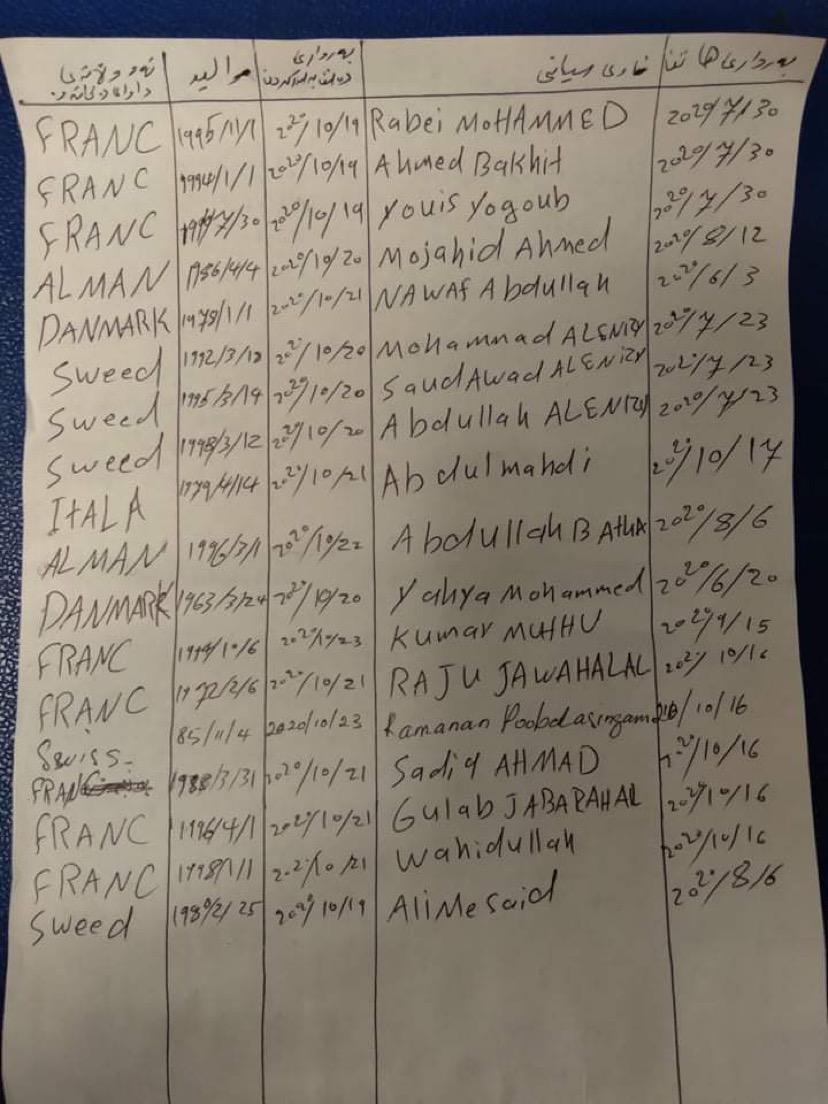 ئەو وڵاتەی داوای دەکاتەوە موالید بەرواری ناوی سیانی بەرواری هاتن
FRANC 1995/11/1 2020/10/19 Rabei MOHAMMED 2020/7/30
FRANC 1994/1/1 2020/10/19 Ahmed Bakhit 2020/7/30
FRANC 2020/10/19 Youis Yogoub 2020/7/30
ALMAN 1986/4/4 2020/10/20 Mojahid Ahmed 2020/8/12
DANMARK 1978/1/1 2020/10/21 NAWAF Abdullah 2020/6/3
Sweed 1992/3/18 2020/10/20 Mohammad ALENIZY 2020/7/23
Sweed 1995/3/19 2020/10/20 Saud Awad ALENIZY 2020/7/23
Sweed 1998/3/12 2020/10/20 Abdullah ALENIZY 2020/7/23
ItALA 1979/4/14 2020/10/21 Abdulmahdi 2020/10/17
ALMAN 1996/3/1 2020/10/22 Abdullah BAthA 2020/8/6
DANMARK 1963/3/24 2020/10/20 Yahya Mohammed 2020/6/20
FRANC 1994/10/6 2020/10/23 Kumar MUtHU 2020/9/15
FRANC 1972/2/6 2020/10/21 RAJU JAWAHALAL 2020/10/16
Swiss 85/11/4 2020/10/23 Ramanan Poobalasingam 2020/10/16
FRANC 1988/3/31 2020/10/21 Sadiq AHMAD 2020/10/16
FRANC 1996/4/1 2020/10/21 Gulab JABARAHAL 2020/10/16
FRANC 1998/1/1 2020/10/21 Wahidullah 2020/10/16
Sweed 1980/2/25 2020/10/19 AliMe Said 2020/8/6